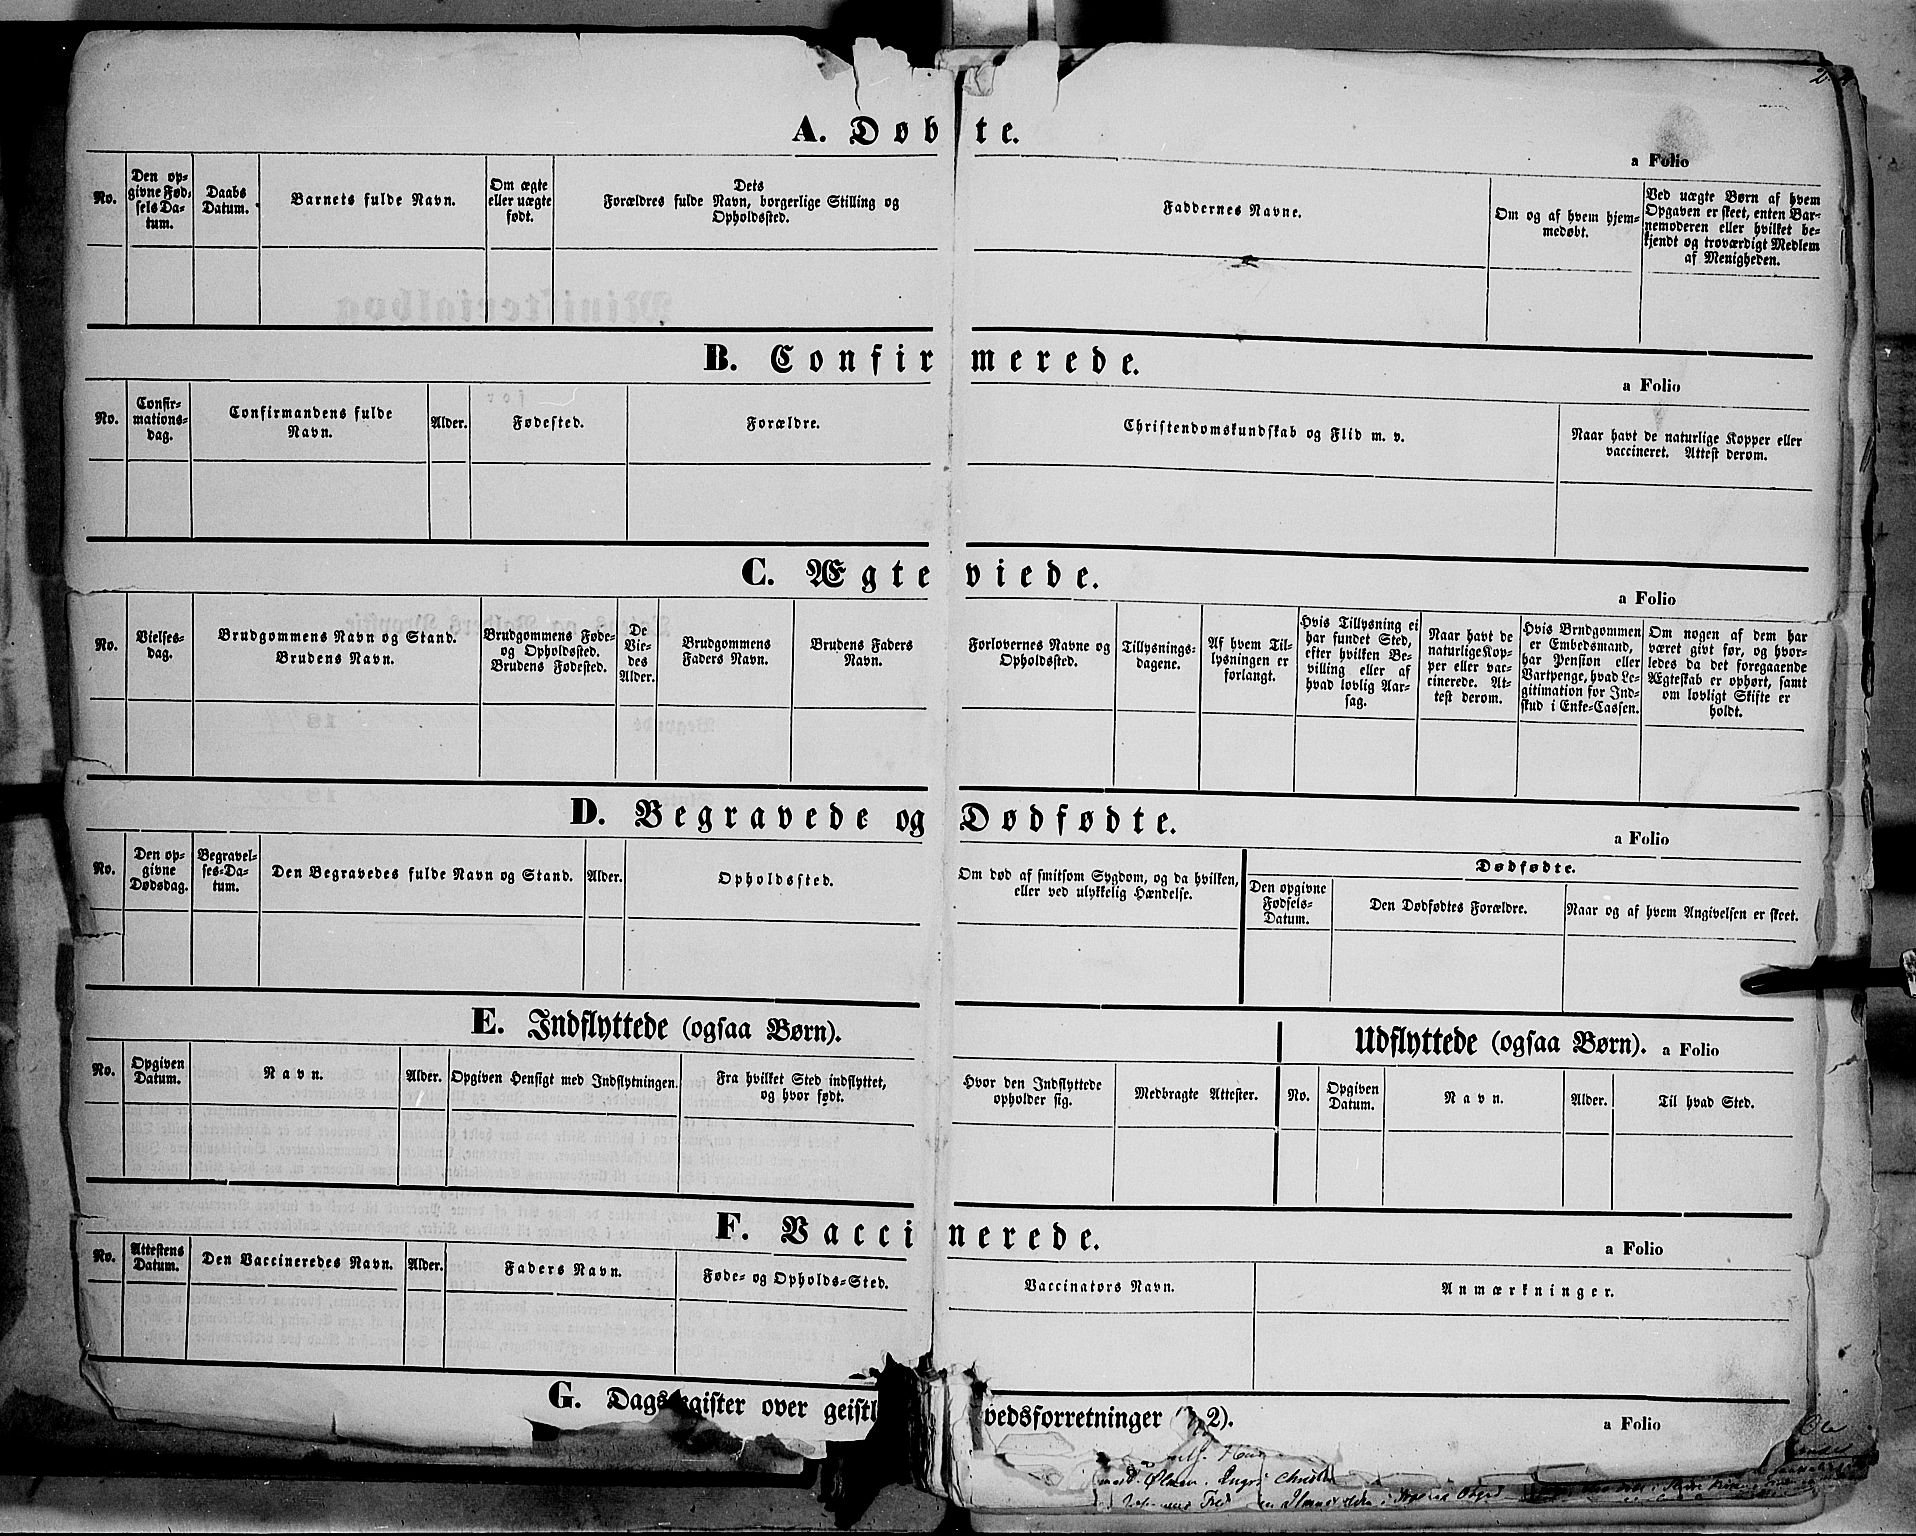 A. Døbte.
a Folio
No.
Den op-
givne Fød-
sels Da-
tum.
Daabs
Datum.
Barnets fulde Navn.
Om ægte
eller uægte
født.
Dets
Forældres fulde Navn, borgerlige Stilling og
Opholdssted.
Faddernes Navne.
Om og af hvem hjem-
medøbt.
Ved uægte Børn af hvem
Opgaven er skeet, enten Bar-
nemoderen eller hvilket be-
kjendt og troværdigt Medlem
af Menigheden.
B. Confirmerede.
a Folio
No.
Confir-
mations-
dag.
Confirmandens fulde
Navn.
Alder.
Fødested.
Forældre.
Christendomskundskab og Flid m. v.
Naar havt de naturlige Kopper eller
vaccineret. Attest derom.
C. Ægteviede.
a Folio
No.
Vielses-
dag.
Brudgommens Navn og Stand.
Brudens Navn.
Brudgommens Føde-
og Opholdssted.
Brudens Fødested.
De
Vie-
des
Alder.
Brudgommens
Faders Navn.
Brudens Faders
Navn.
Forlovernes Navne og
Opholdssted.
Tillysnings-
dagene.
Af hvem Til-
lysningen er
forlangt.
Hvis Tillysning ei
har fundet Sted,
efter hvilken Be-
villing eller af
hvad lovlig Aar-
sag.
Naar havt de
naturlige Kop-
per eller vac-
cinerede. At-
test derom.
Hvis Brudgommen
er Embedsmand,
har Pension eller
Vartpenge, hvad Le-
gitimation for Ind-
skud i Enke-Cassen.
Om nogen af dem har
været givt før, og hvor-
ledes da det foregaaende
Ægteskab er ophørt, samt
om lovligt Skifte er
holdt.
D. Begravede og Dødfødte.
a Folio
No.
Den op-
givne
Dødsdag.
Begravel-
ses-Da-
tum.
Den Begravedes fulde Navn og Stand.
Alder.
Opholdssted.
Om død af smitsom Sygdom, og da hvilken,
eller ved ulykkelig Hændelse.
Dødfødte.
Den opgivne
Fødsels-
Datum.
Den Dødfødtes Forældre.
Naar og af hvem Angivelsen er skeet.
E. Indflyttede (ogsaa Børn).
Udflyttede (ogsaa Børn). a Folio
No.
Opgiven
Datum.
Navn.
Alder.
Opgiven Hensigt med Indflytningen.
Fra hvilket Sted indflyttet,
og hvor født.
Hvor den Indflyttede
opholder sig.
Medbragte Attester.
No.
Opgiven
Datum.
Navn.
Alder.
Til hvad Sted.
F. Vaccinerede.
a Folio
No.
Attestens
Datum.
Den Vaccineredes Navn.
Alder.
Faders Navn.
Føde- og Opholds-Sted.
Vaccinators Navn.
Anmærkninger.
G. Dagsregister over geistl vedsforretninger 2).
a Folio
Ole
Olsen. Inger Christ